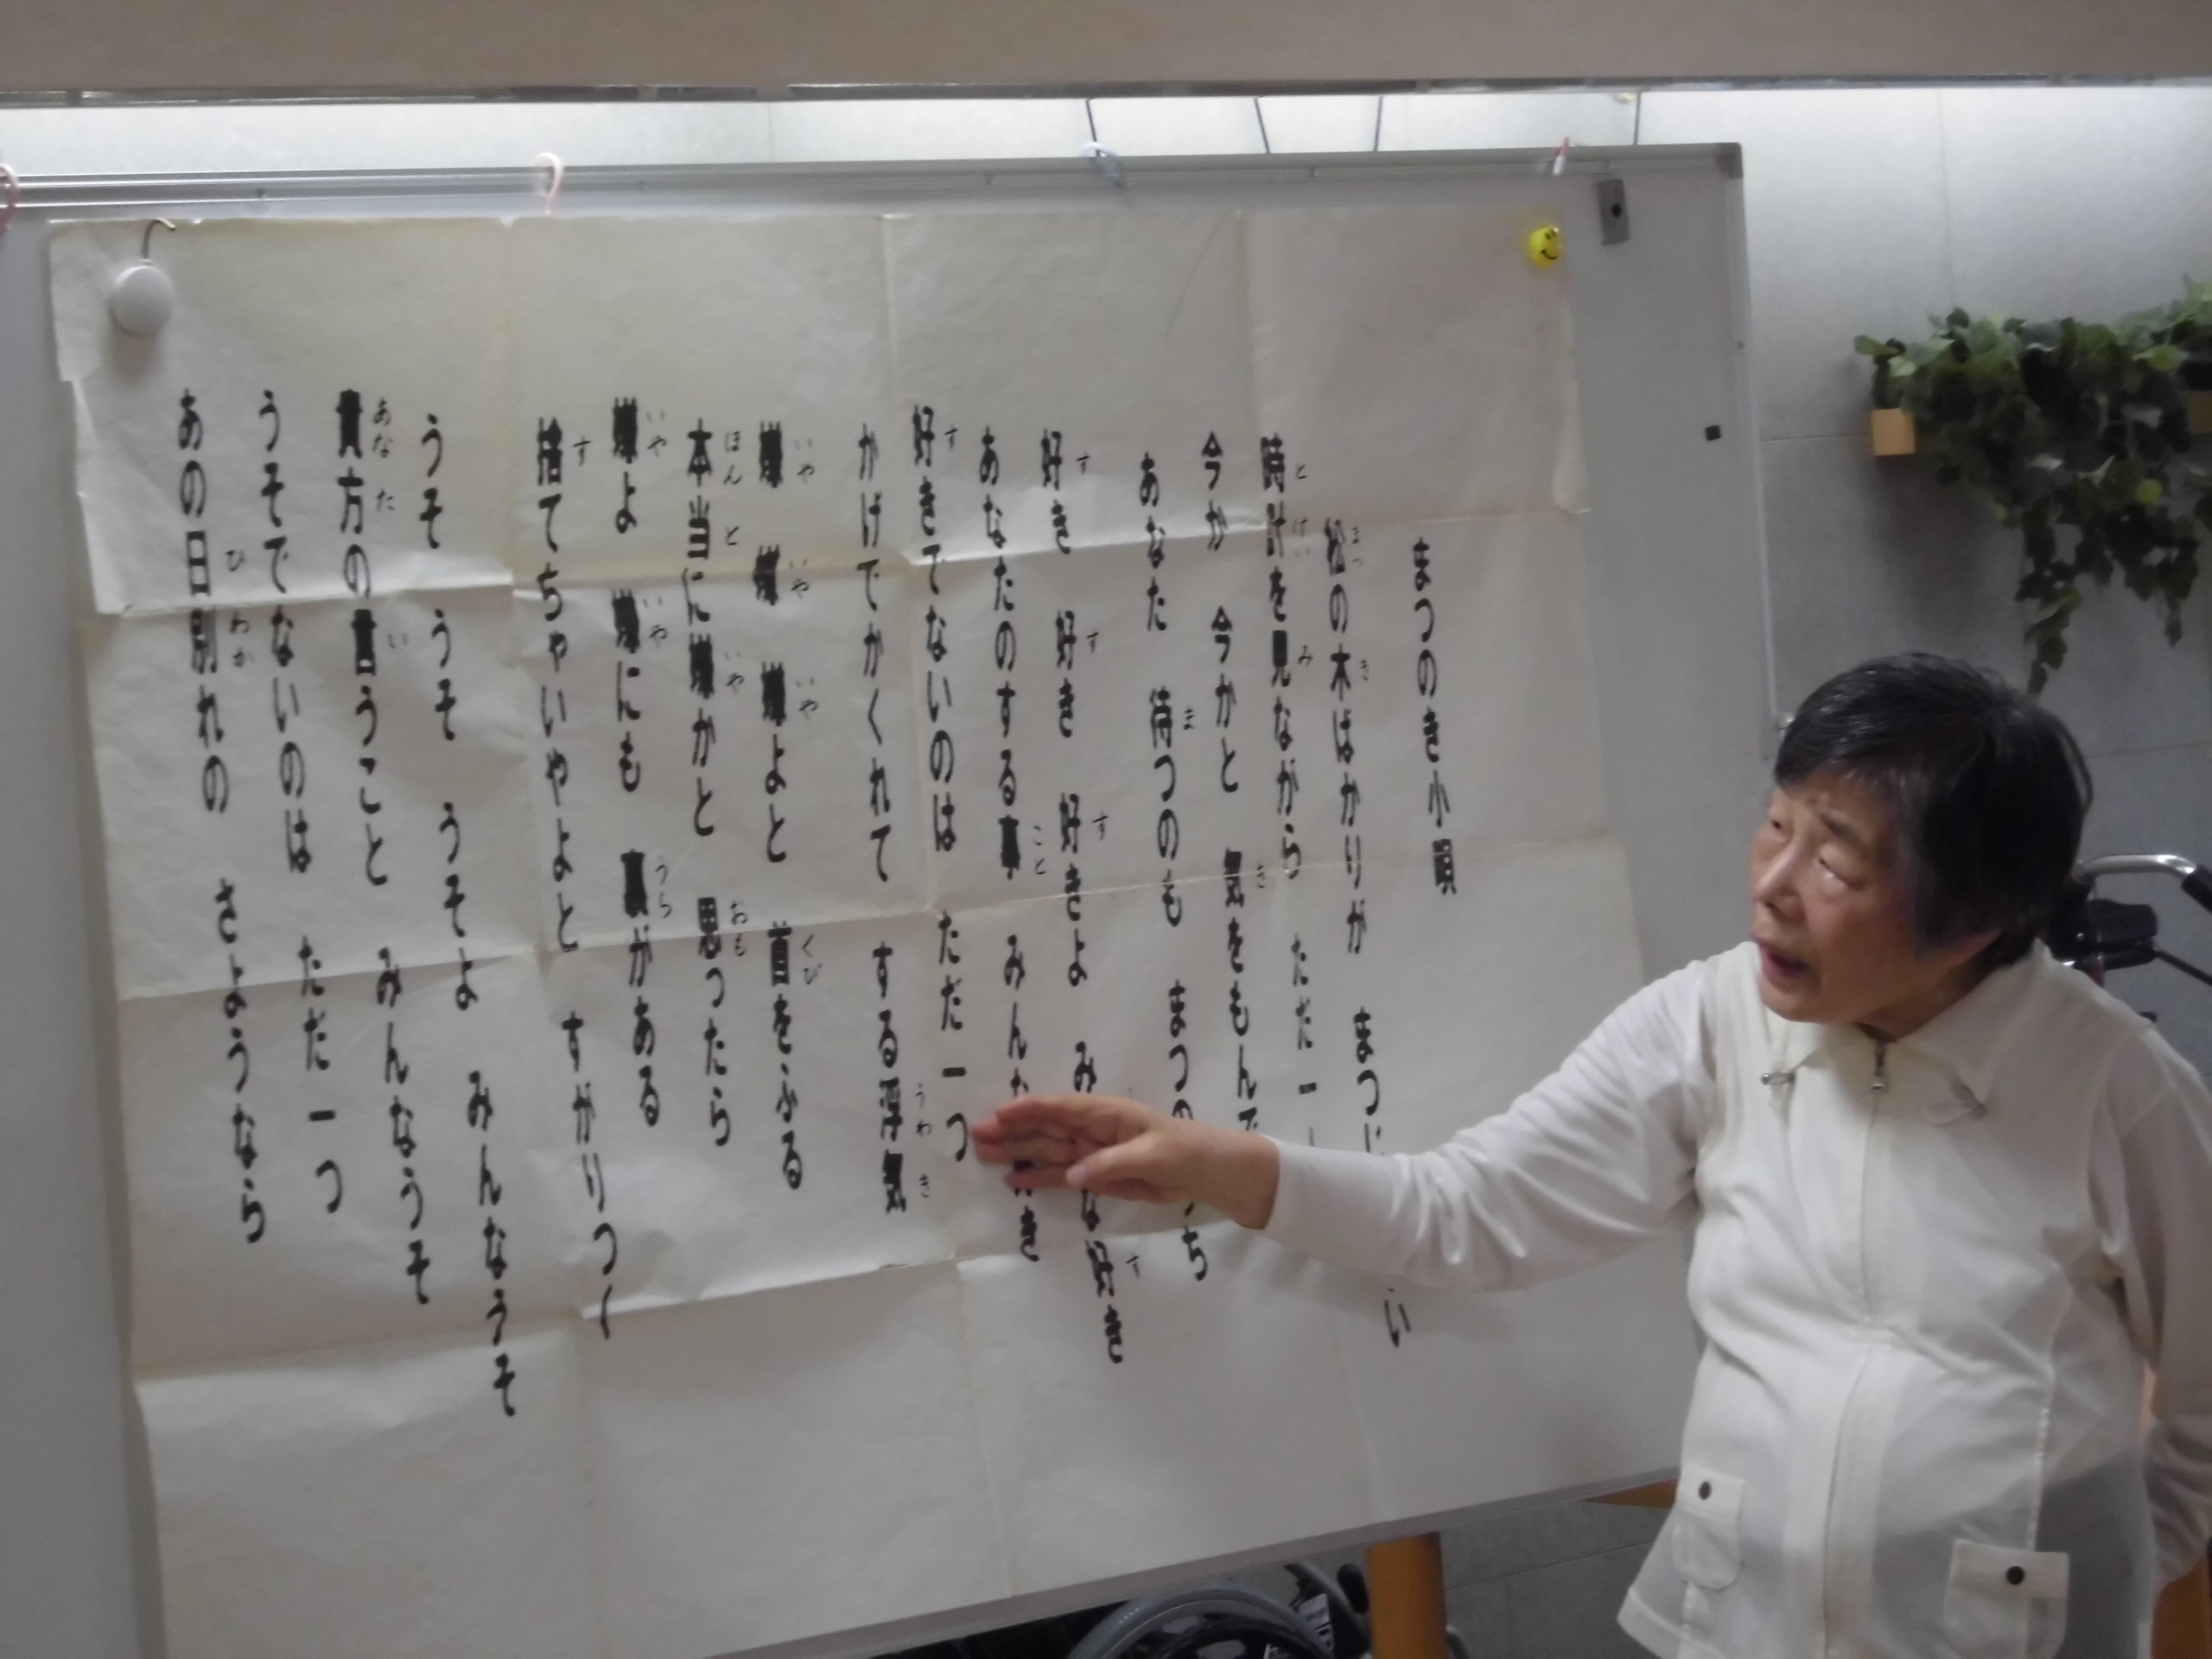 まつのき小唄
松の木ばかりが まつ い
時計を見ながら ただ一
今か 今かと 気をもんで
あなた 待つのも まつの ち
好き 好き 好きよ み な好き
あなたのする事 みん き
好きでないのは ただ一つ
かげでかくれて する浮気
嫌 嫌 嫌よと 首をふる
本当に嫌かと 思ったら
嫌よ 嫌にも 裏がある
捨てちゃいやよと すがりつく
うそ うそ うそよ みんなうそ
貴方の言うこと みんなうそ
うそでないのは ただ一つ
あの日別れの さようなら